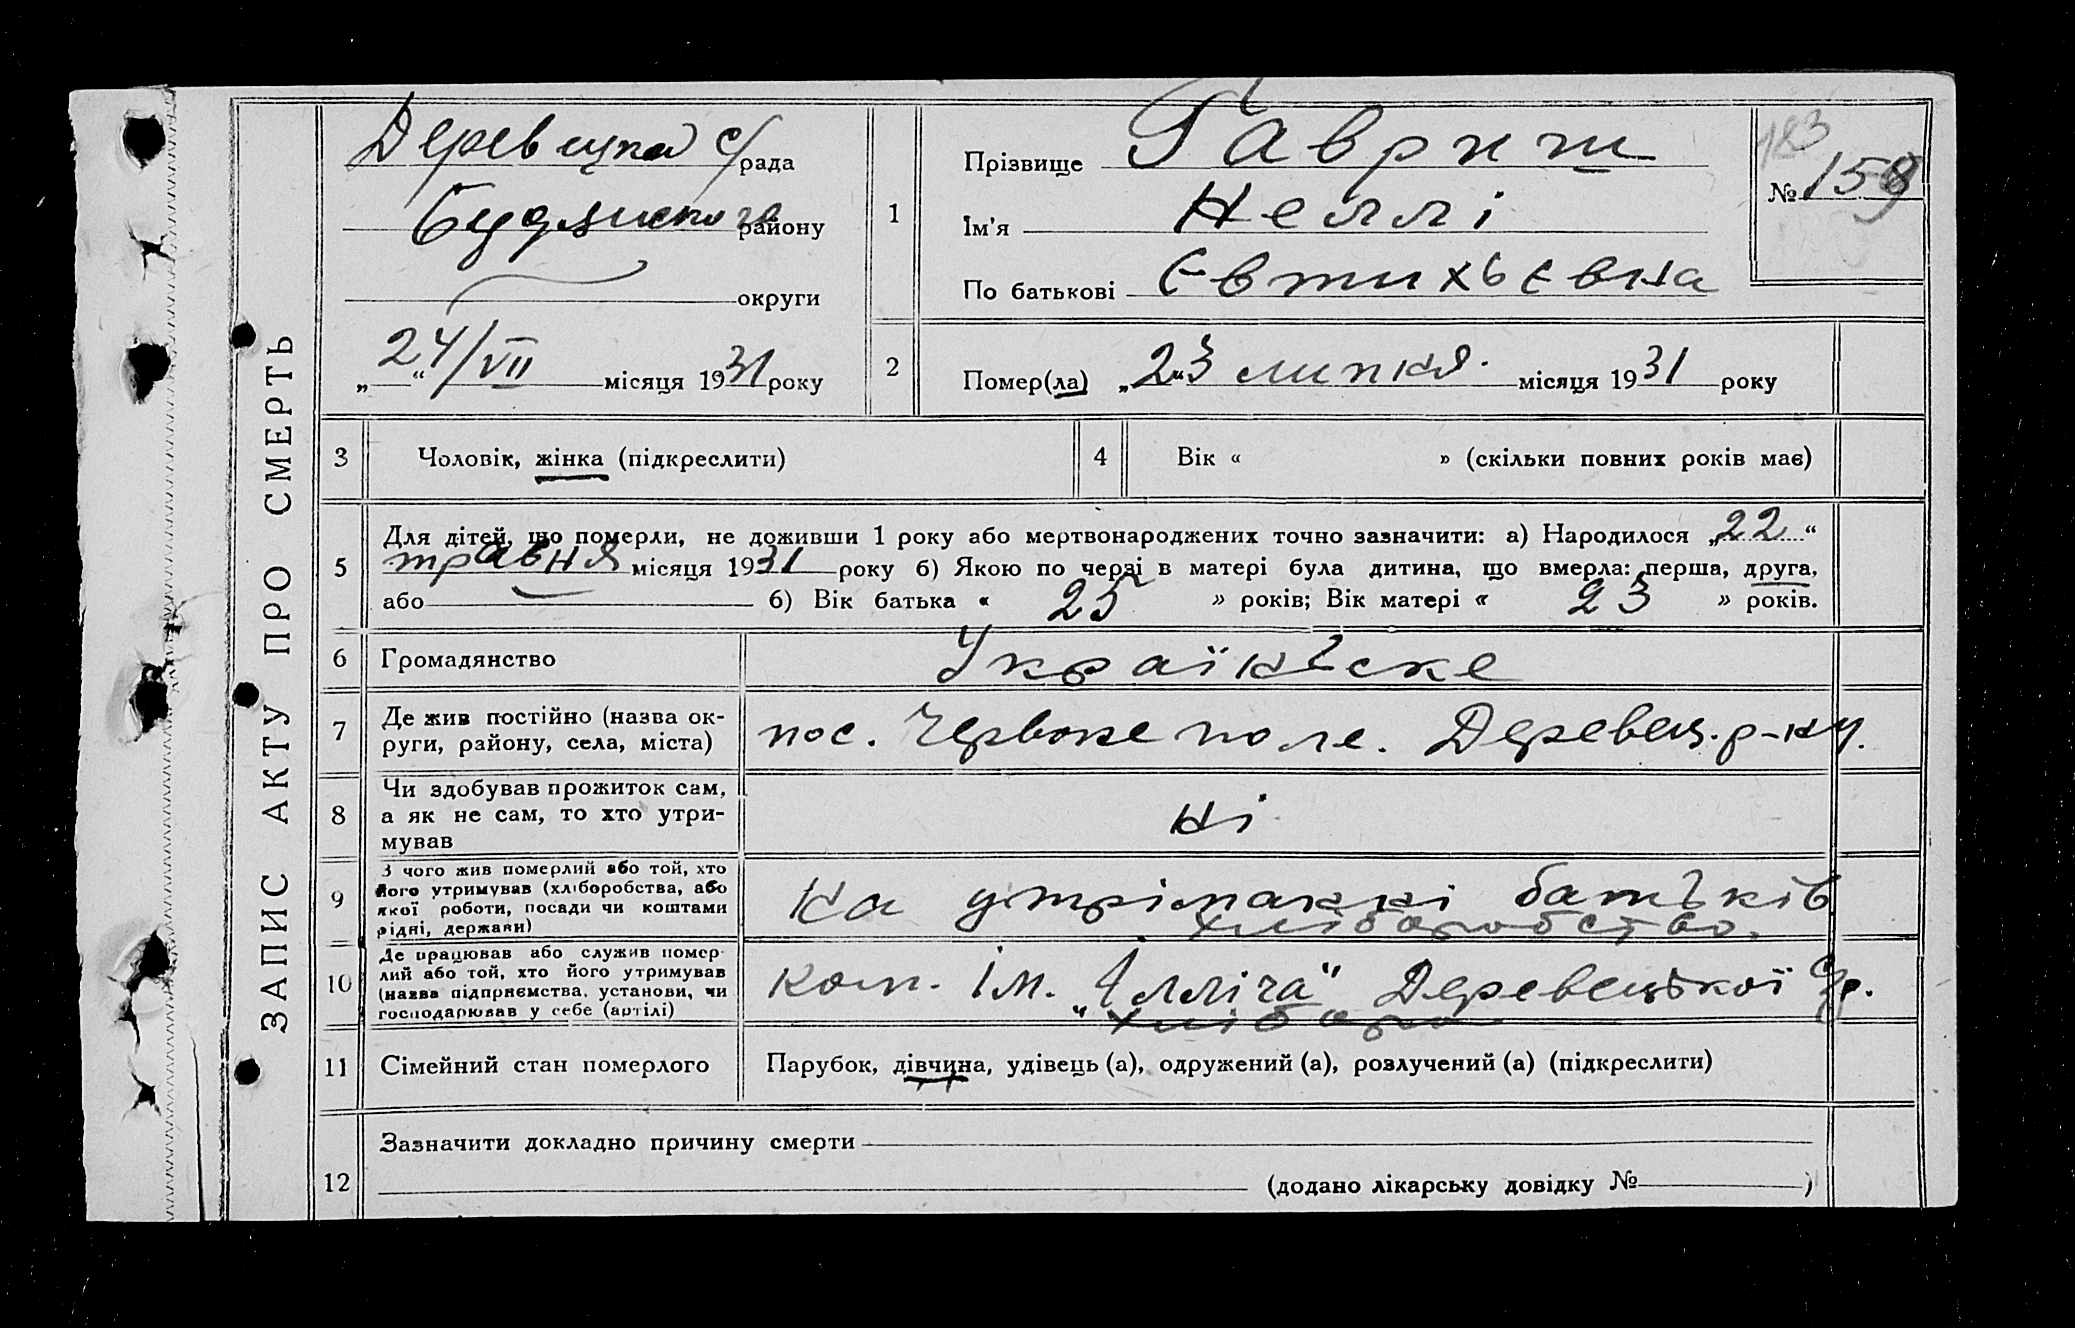 ЗАПИС АКТУ ПРО СМЕРТЬ
Деревецька с/рада
району
округи
„ “ 24/VII місяця 1931 року
1
Прізвище Гавриш
Ім'я Неллі
По батькові Євтихьєвна
183
№ 159
2
Помер(ла) „23“ липня місяця 1931 року
3 Чоловік, жінка (підкреслити)
4 Вік « » (скільки повних років має)
5 Для дітей, що померли, не доживши 1 року або мертвонароджених точно зазначити: а) Народилося „22“
травня місяця 1931 року б) Якою по черзі в матері була дитина, що вмерла: перша, друга,
або — б) Вік батька « 25 » років; Вік матері « 23 » років.
6 Громадянство Українське
7 Де жив постійно (назва ок-
руги, району, села, міста) пос. Червоне поле. Деревец. р-ну.
8 Чи здобував прожиток сам,
а як не сам, то хто утри-
мував ні
9 З чого жив померлий або той, хто
його утримував (хліборобства, або
якої роботи, посади чи коштами
рідні, держави) на утріманні батьків
хліборобство.
10 Де працював або служив помер-
лий або той, хто його утримував
(назва підприємства, установи, чи
господарював у себе (артілі) ком. ім. „Ілліча" Деревецької с/р.
хлібороб
11 Сімейний стан померлого Парубок, дівчина, удівець (а), одружений (а), розлучений (а) (підкреслити)
12 Зазначити докладно причину смерти
(додано лікарську довідку № )